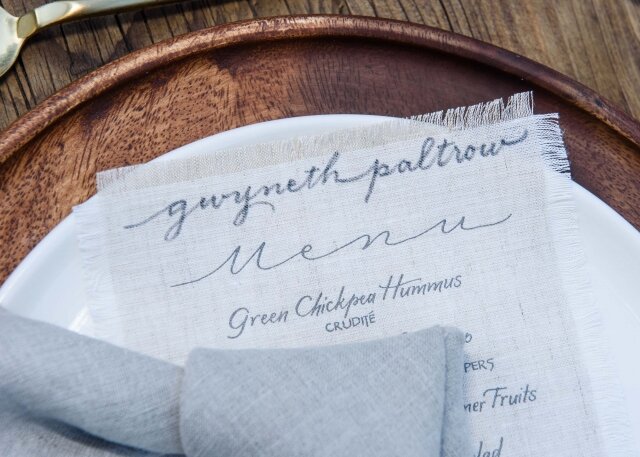 gwyneth paltrow
Menu
Green Chickpea Hummus
CRUDITÉ
Fruits